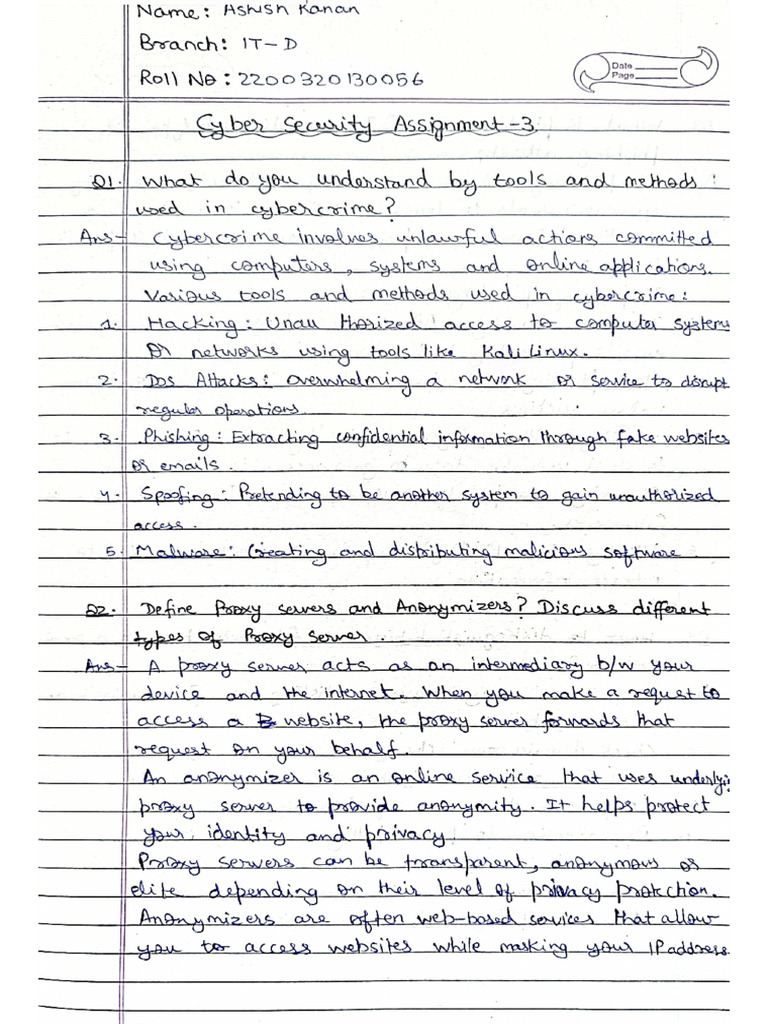 Name: Ashish Kanan
Branch: IT-D
Date
Page
Roll No: 2200320130056
Cyber Security Assignment-3
Q1. What do you understand by tools and methods
used in cybercrime?
Ans- Cybercrime involves unlawful actions committed
using computers, systems and online applications.
Various tools and methods used in cybercrime:
1. Hacking: Unau thorized access to computer systems
or networks using tools like Kali Linux.
2. Dos Attacks: overwhelming a network or service to disrupt
regular operations
3. Phishing: Extracting confidential information through fake websites
or emails.
4. Spoofing: Pretending to be another system to gain unauthorized
access.
5. Malware: Creating and distributing malicious software
Q2. Define Proxy servers and Anonymizers? Discuss different
types of Proxy Server.
Ans- A proxy server acts as an intermediary b/w your
device and the internet. When you make a request to
access a website, the proxy server forwards that
request on your behalf.
An anonymizer is an online service that uses underlyi
proxy server to provide anonymity. It helps protect
your identity and privacy.
Proxy servers can be transparent, anonymous or
elite depending on their level of privacy protection.
Anonymizers are often web-based services that allow
you to access websites while masking your IP address